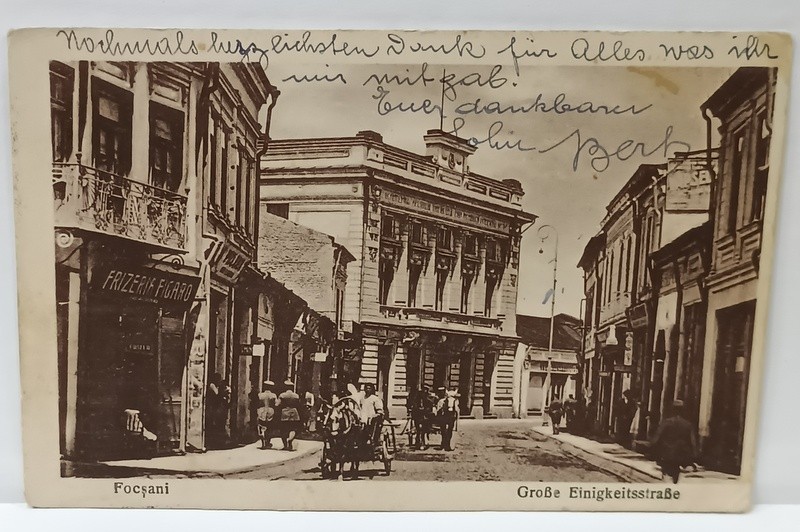 Nochmals herzlichsten Dank für Alles was ihr
mir mitgab.
Euer dankbarer
Sohn Bert
FRIZERIE FIGARO
Focșani
Große Einigkeitsstraße